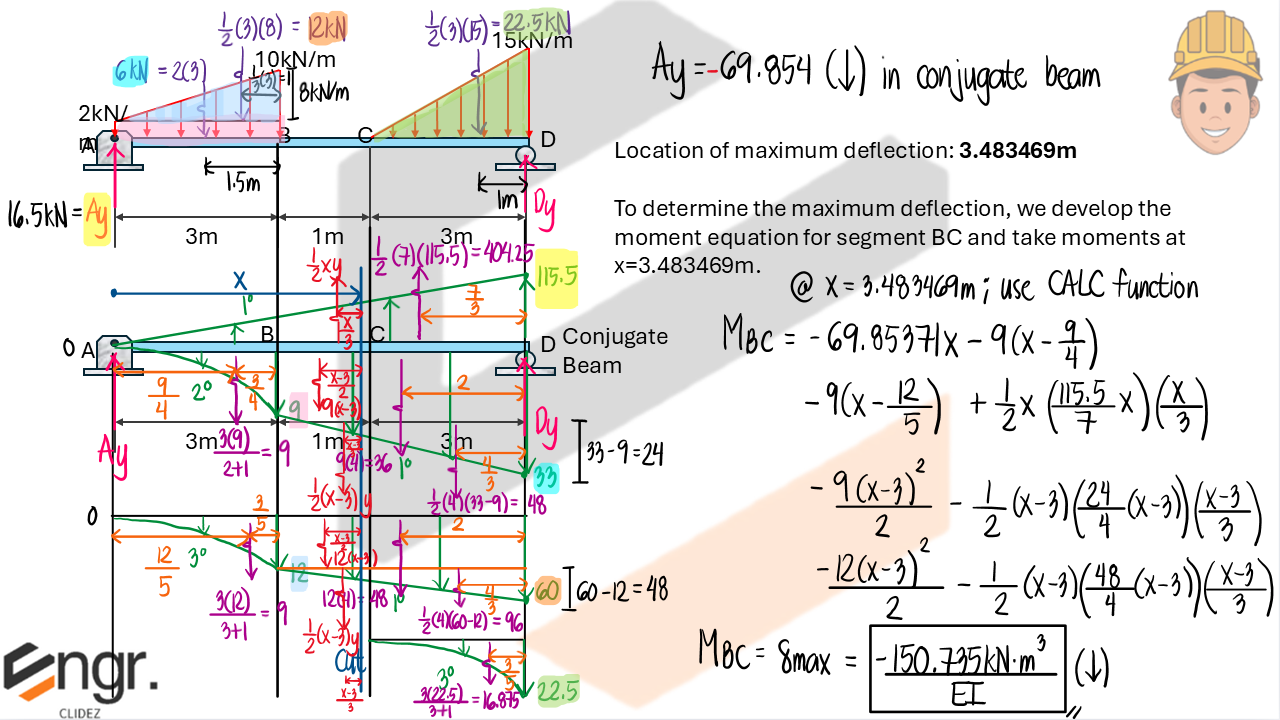 1/2(3)(8) = 12kN
1/2(3)(15) = 22.5kN
15kN/m
6kN = 2(3)
10kN/m
8kN/m
2kN/
m
A B C D
1.5m
1m
Dy
16.5kN = Ay
3m 1m 3m
1/2(7)(115.5) = 404.25
115.5
1/2xy
x
x/3
7/3
1°
0 A B C D
Conjugate
Beam
9/4 2° 3/4
9
x-3/2
9(x-3)
2
3m 1m 3m
Ay
Dy
3(9)/2+1 = 9
9(4)=36
1°
4/3
33-9=24
33
1/2(x-3)y
1/2(4)(33-9) = 48
0
3/5
2
12/5
3°
x-3/2
12(x-3)
12
12(4)=48
1°
4/3
60
60-12=48
3(12)/3+1 = 9
1/2(4)(60-12) = 96
1/2(x-3)y
Cut
x-3/3
3°
3/5
3(22.5)/3+1 = 16.875
22.5
Engr.
CLIDEZ
Ay = -69.854 (↓) in conjugate beam
Location of maximum deflection: 3.483469m
To determine the maximum deflection, we develop the
moment equation for segment BC and take moments at
x=3.483469m.
@ x = 3.483469m ; use CALC function
MBC = -69.85371x - 9(x - 9/4)
-9(x - 12/5) + 1/2x (115.5/7 x)(x/3)
- 9(x-3)²/2 - 1/2(x-3)(24/4(x-3))(x-3/3)
-12(x-3)²/2 - 1/2(x-3)(48/4(x-3))(x-3/3)
MBC = δmax = -150.735kN·m³/EI (↓)